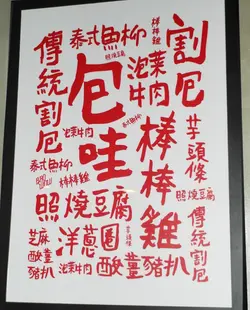 傳統割包
泰式魚柳
照燒豆腐
棒棒雞
割包
泡菜牛肉
包哇
泡菜牛肉
泰式魚柳
棒棒雞
芋頭條
泰式魚柳
棒棒雞
照燒豆腐
照燒豆腐
傳統割包
洋蔥圈
芋頭條
芝麻
酸薑
豬扒
泡菜牛肉
酸薑豬扒